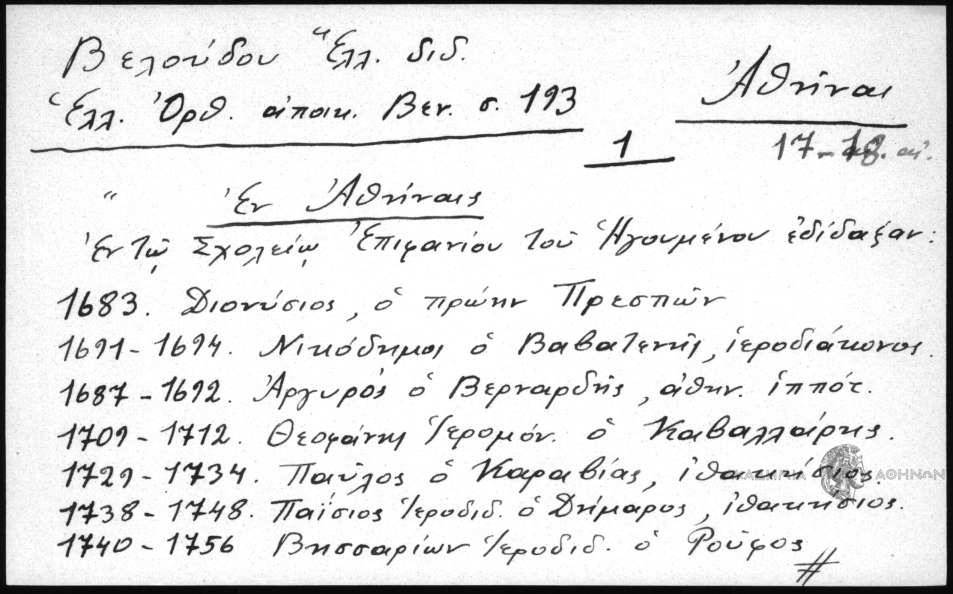 Βελούδου "Ἑλλ. διδ.
Ἑλλ. Ὀρθ. ἀποικ. Βεν. σ. 193
Ἀθῆναι
1
17-18. αἰ.
" Ἐν Ἀθήναις
Ἐν τῷ Σχολείῳ Ἐπιφανίου τοῦ Ἡγουμένου ἐδίδαξαν:
1683. Διονύσιος, ὁ πρώην Πρεσπῶν
1691-1694. Νικόδημος ὁ Βαβατενῆς, ἱεροδιάκονος.
1687-1692. Ἀργυρός ὁ Βερναρδῆς, ἀθην. ἱππότ.
1709-1712. Θεοφάνης Ἱερομόν. ὁ Καβαλλάρης.
1729-1734. Παῦλος ὁ Καραβίας, ἰθακήσιος.
ΑΘΗΝΩΝ
1738-1748. Παΐσιος Ἱεροδιδ. ὁ Δήμαρος, ἰθακήσιος.
1740-1756 Βησσαρίων Ἱεροδιδ. ὁ Ροῦφος